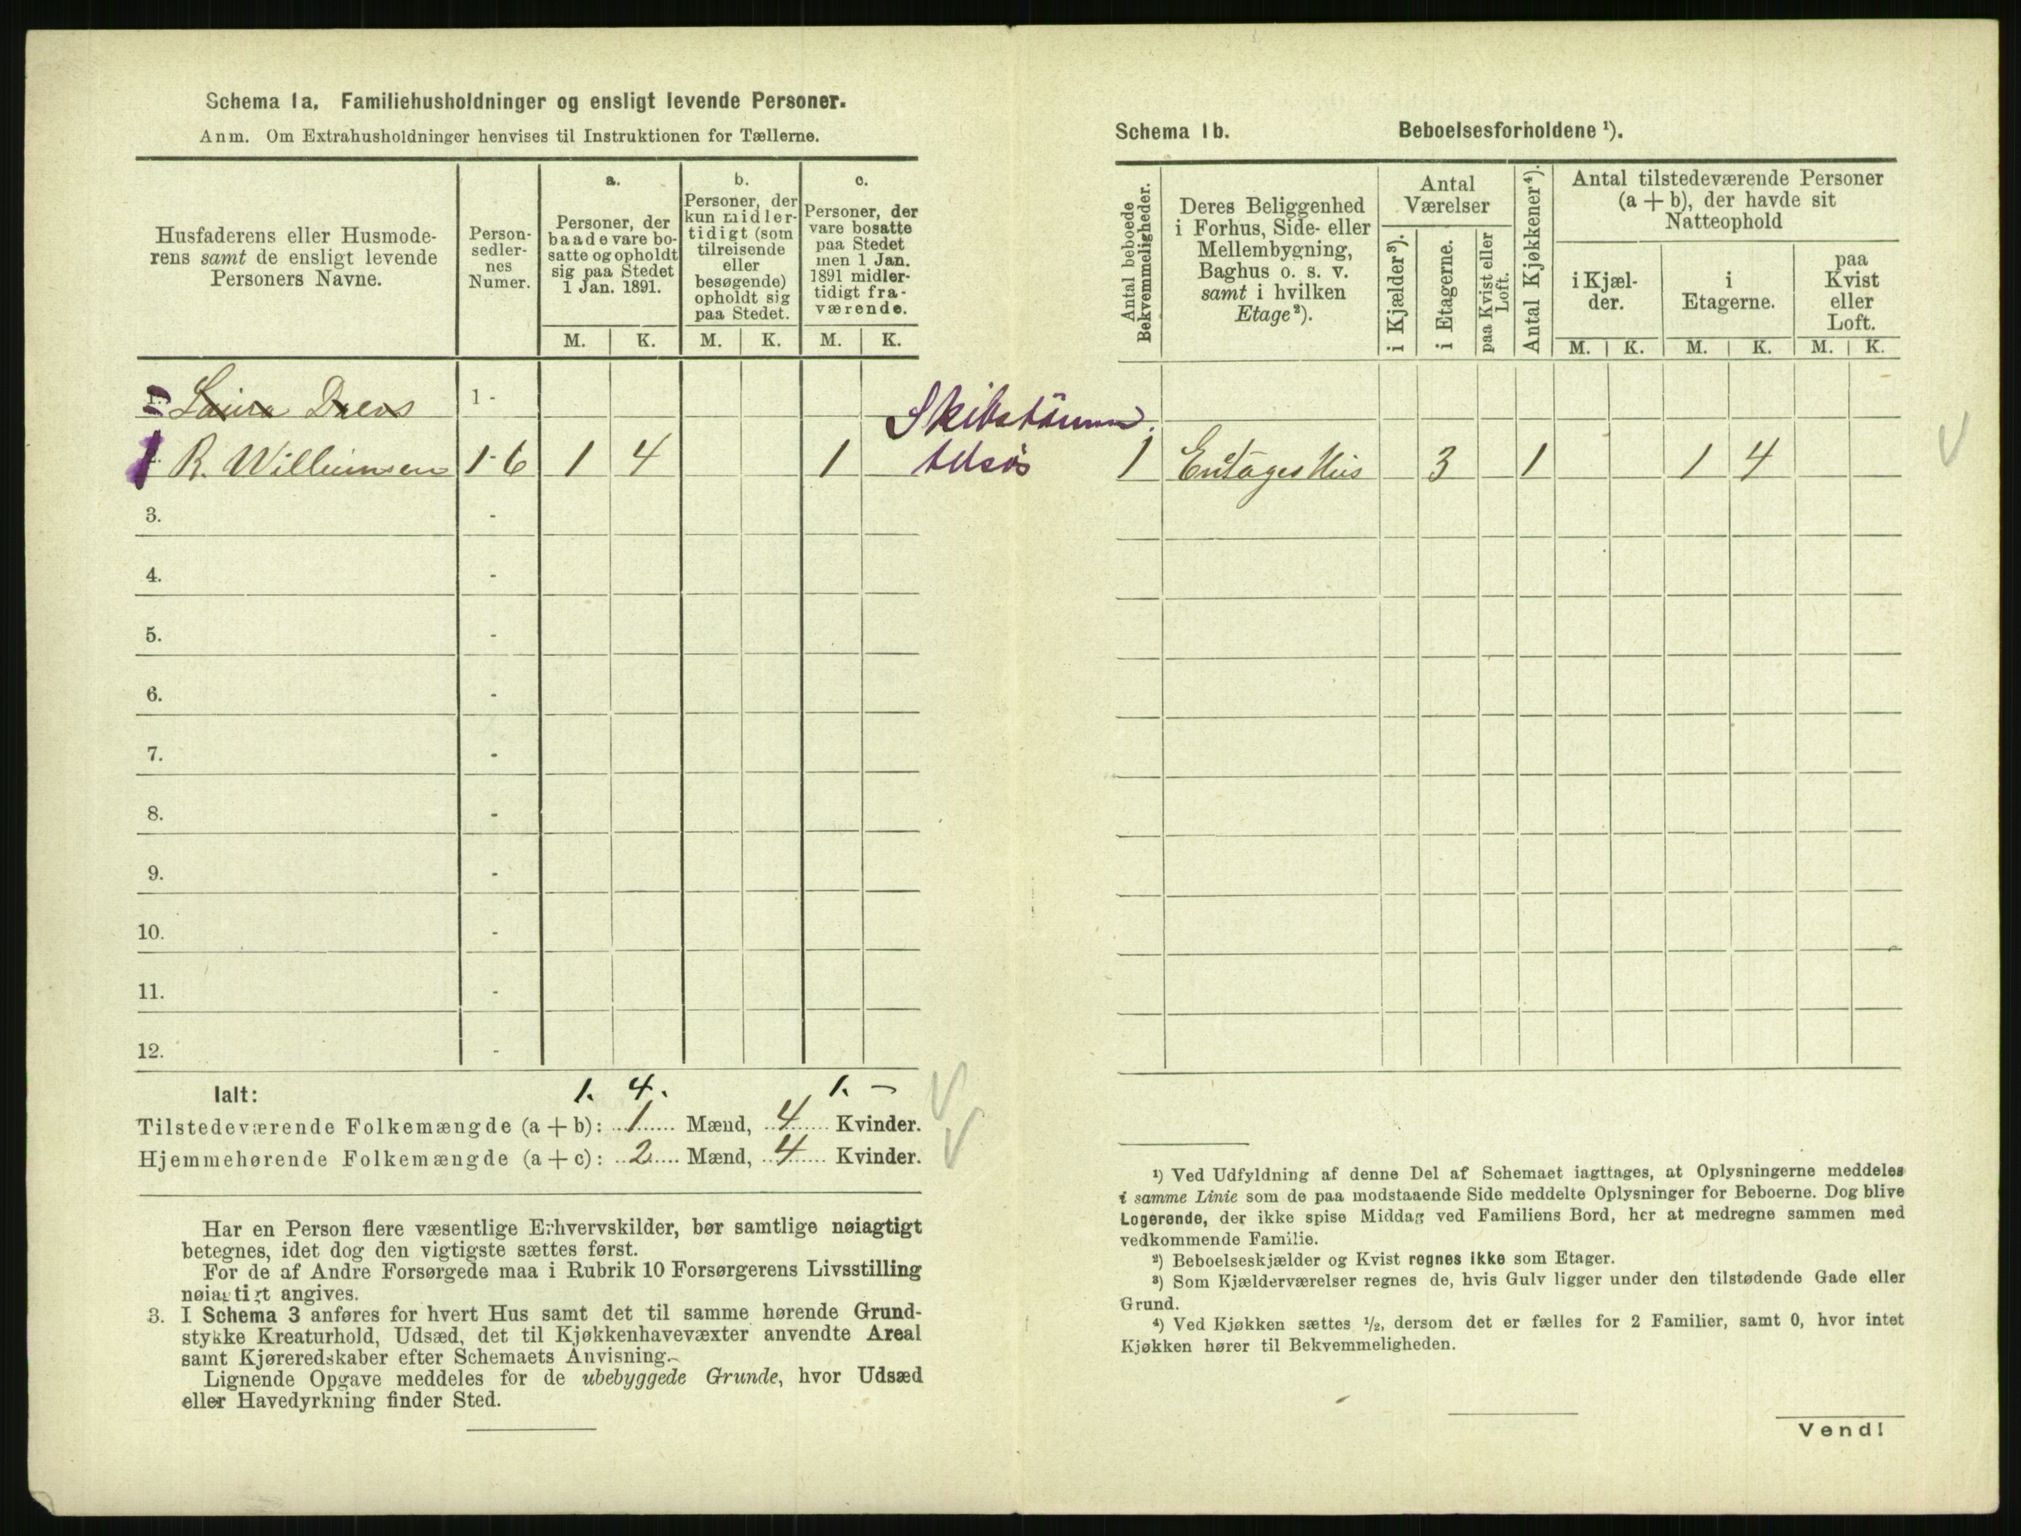 Schema 1a. Familiehusholdninger og ensligt levende Personer.
Anm. Om Extrahusholdninger henvises til Instruktionen for Tællerne.
Husfaderens eller Husmode-
rens samt de ensligt levende
Personers Navne.
Person-
sedler-
nes
Numer.
a.
Personer, der
baade vare bo-
satte og opholdt
sig paa Stedet
1 Jan. 1891.
b.
Personer, der
kun midler-
tidigt (som
tilreisende
eller
besøgende)
opholdt sig
paa Stedet.
c.
Personer, der
vare bosatte
paa Stedet
men 1 Jan.
1891 midler-
tidigt fra-
værende.
M. K. M. K. M. K.
Laura 1 -
1 R. Willumsen 1-6 1 4 1
3. -
4. -
5. -
6. -
7. -
8. -
9. -
10. -
11. -
12. -
Ialt: 1. 4. 1. –
Tilstedeværende Folkemængde (a + b): 1 Mænd, 4 Kvinder.
Hjemmehørende Folkemængde (a + c): 2 Mænd, 4 Kvinder.
Har en Person flere væsentlige Erhvervskilder, bør samtlige nøiagtigt
betegnes, idet dog den vigtigste sættes først.
For de af Andre Forsørgede maa i Rubrik 10 Forsørgerens Livsstilling
nøiagtigt angives.
3. I Schema 3 anføres for hvert Hus samt det til samme hørende Grund-
stykke Kreaturhold, Udsæd, det til Kjøkkenhavevæxter anvendte Areal
samt Kjøreredskaber efter Schemaets Anvisning.
Lignende Opgave meddeles for de ubebyggede Grunde, hvor Udsæd
eller Havedyrkning finder Sted.
Schema 1b. Beboelsesforholdene ¹).
Antal beboede
Bekvemmeligheder.
Deres Beliggenhed
i Forhus, Side- eller
Mellembygning,
Baghus o. s. v.
samt i hvilken
Etage²).
Antal
Værelser
i Kjælder³).
i Etagerne.
paa Kvist eller
Loft.
Antal Kjøkkener⁴).
Antal tilstedeværende Personer
(a + b), der havde sit
Natteophold
i Kjæl-
der.
i
Etagerne.
paa
Kvist
eller
Loft.
M. K. M. K. M. K.
tilsøs 1 Enetages Hus 3 1 1 4
¹) Ved Udfyldning af denne Del af Schemaet iagttages, at Oplysningerne meddeles
i samme Linie som de paa modstaaende Side meddelte Oplysninger for Beboerne. Dog blive
Logerende, der ikke spise Middag ved Familiens Bord, her at medregne sammen med
vedkommende Familie.
²) Beboelseskjælder og Kvist regnes ikke som Etager.
³) Som Kjælderværelser regnes de, hvis Gulv ligger under den tilstødende Gade eller
Grund.
⁴) Ved Kjøkken sættes ½, dersom det er fælles for 2 Familier, samt 0, hvor intet
Kjøkken hører til Bekvemmeligheden.
Vend!